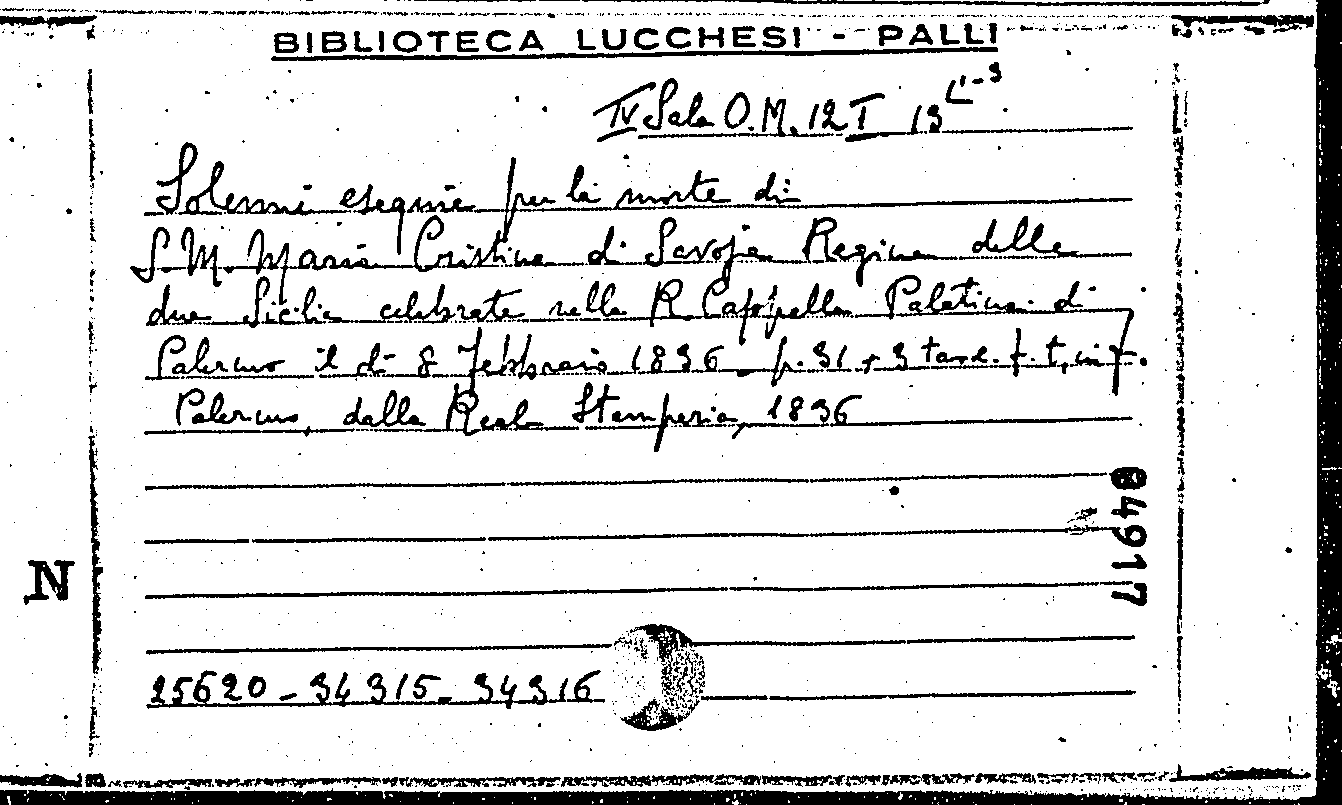 BIBLIOTECA LUCCHESI - PALLI
IV Sala O.M. 12 I 13 (1-3
Solenni esequie per la morte di
S.M. Maria Cristina di Savoja Regina delle
due Sicilie celebrate nella R. Cappella Palatina di
Palermo il dì 8 febbraio 1836 - p. 31 + 3 tavv. f. t., in f.
Palermo, dalla Reale Stamperia, 1836
04917
N
25620 - 34315 - 34316